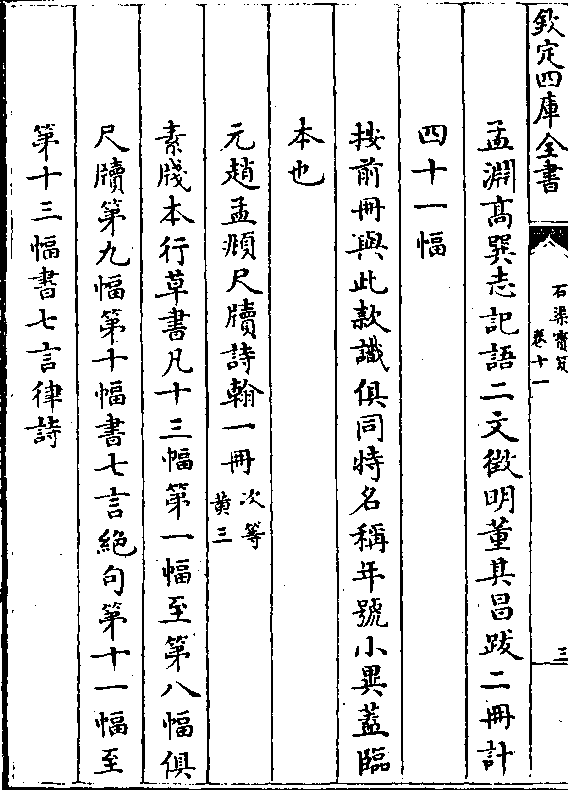 欽定四庫全書
石渠寶笈
卷十一
三
孟淵高巽志記語二文徵明董其昌跋二冊計
四十一幅
按前冊與此款識俱同特名稱年號小異蓋臨
本也
元趙孟頫尺牘詩翰一冊 次等
黄三
素牋本行草書凡十三幅第一幅至第八幅俱
尺牘第九幅第十幅書七言絶句第十一幅至
第十三幅書七言律詩